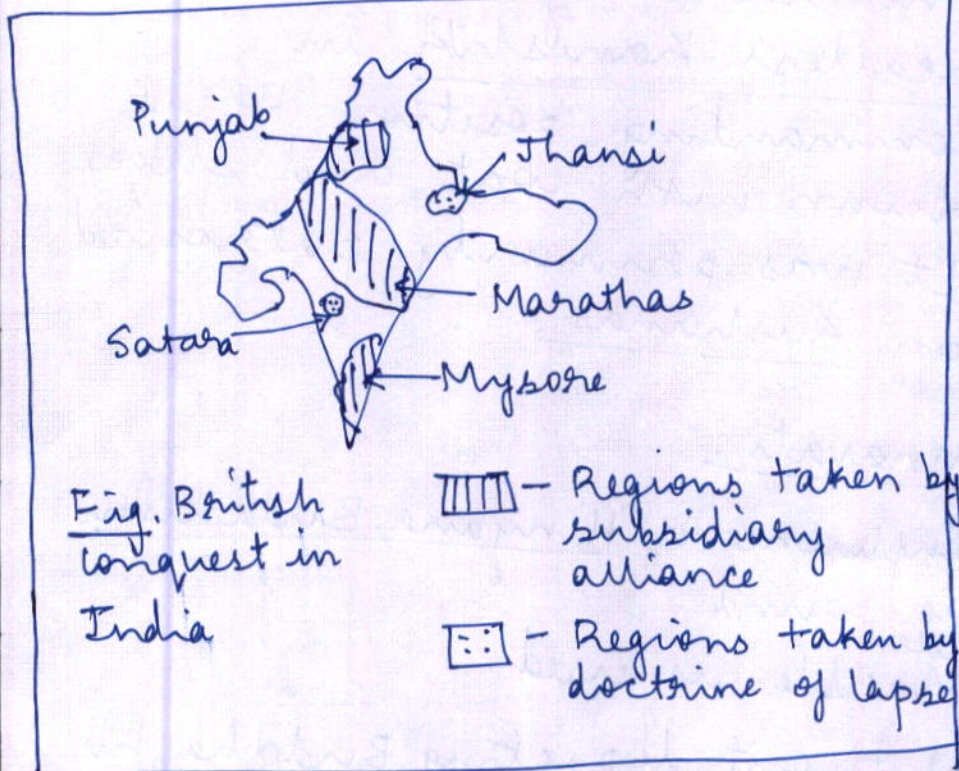 Punjab
Jhansi
Marathas
Satara
Mysore
Fig. British
conquest in
India
- Regions taken by
subsidiary
alliance
- Regions taken by
doctrine of lapse